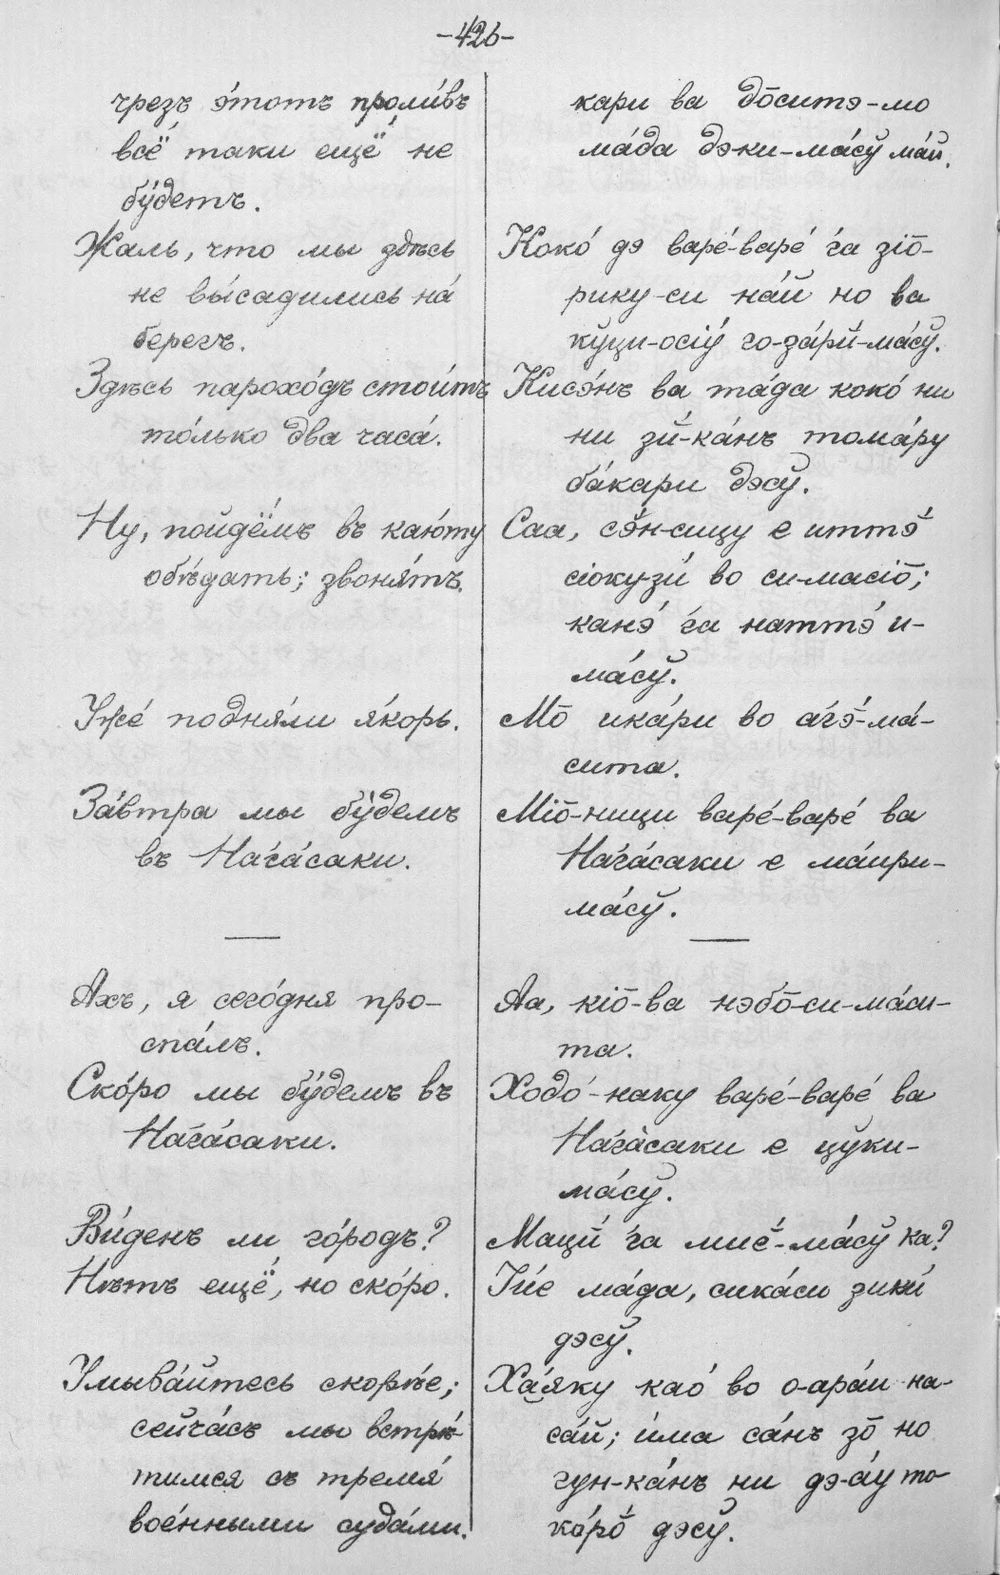 -426-
чрезъ э́тотъ проли́въ
всё таки ещё не
бу́детъ.
Жаль, что мы здѣсь
не вы́садились на́
берегъ.
Здѣсь парохо́дъ стои́тъ
то́лько два часа́.
Ну, пойдёмъ въ каю́ту
обѣ́дать; звоня́тъ.
Уже́ подня́ли я́корь.
За́втра мы бу́демъ
въ На́га́саки.
Ахъ, я сего́дня про-
спа́лъ.
Ско́ро мы бу́демъ въ
На́га́саки.
Ви́денъ ли го́родъ?
Нѣтъ ещё, но ско́ро.
Умыва́йтесь скорѣ́е;
сейча́съ мы встрѣ́-
тимся съ тремя́
вое́нными суда́ми.
кари ва до̄ситэ-мо
ма́да дэки-ма́сў ма́й.
Коко́ дэ варе́-варе́ га зіо̄-
рику-си на́й но ва
куци-осіу́ го-за́рй-ма́сў.
Кисэ́нъ ва та́да коко́ ни
ни зй-ка́нъ тома́ру
ба́кари дэсў.
Саа, сэ́н-сицу е иттэ́
сіоку-зи́ во си-масіо̄;
канэ́ га наттэ́ и-
ма́сў.
Мо̄ ика́ри во а́гэ́-ма́-
сита.
Міо̄-ници варе́-варе́ ва
На́га́саки е ма́ири-
ма́сў.
Аа, кіо̄-ва нэбо̄-си-ма́си-
та.
Ходо́-наку варе́-варе́ ва
На́га́саки е цуки-
ма́сў.
Маци́ га мие́-ма́сў ка?
Іи́е ма́да, сика́си зики́
дэсў.
Ха́яку као́ во о-ара́и на-
са́й; и́ма са́нъ зо̄ но
гун-ка́нъ ни дэ-а́у то-
ко́ро̆ дэсў.